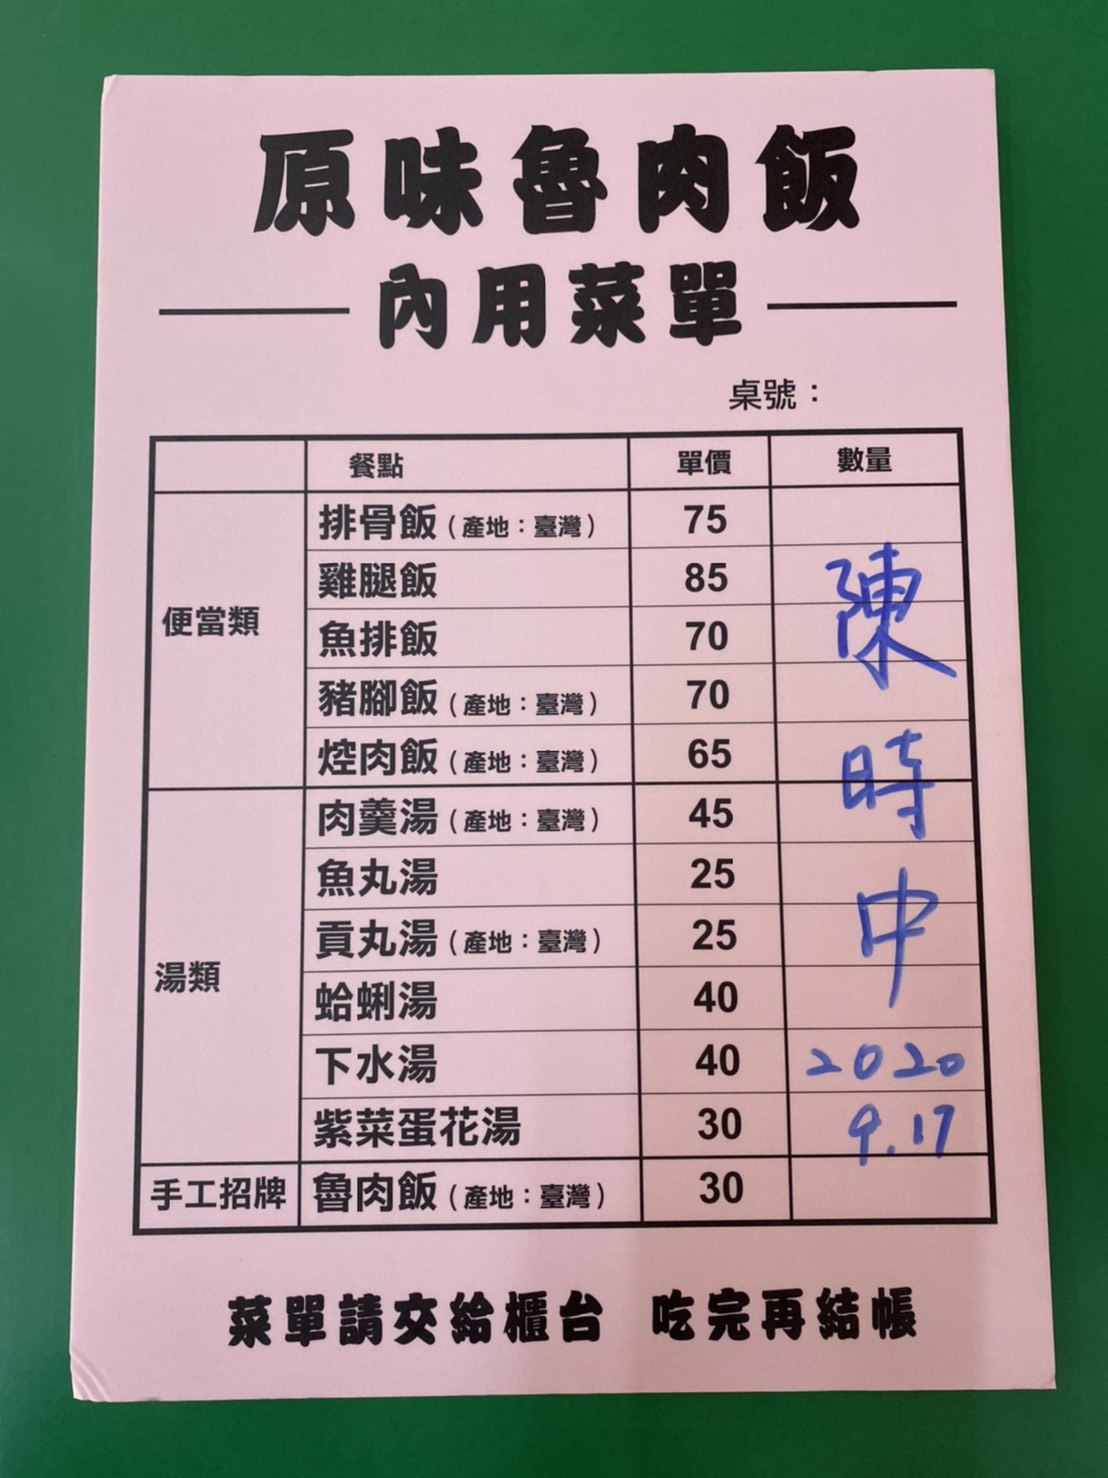 原味魯肉飯
內用菜單
桌號：
餐點 單價 數量
便當類
排骨飯（產地：臺灣） 75
雞腿飯 85
魚排飯 70
豬腳飯（產地：臺灣） 70
焢肉飯（產地：臺灣） 65
湯類
肉羹湯（產地：臺灣） 45
魚丸湯 25
貢丸湯（產地：臺灣） 25
蛤蜊湯 40
下水湯 40
紫菜蛋花湯 30
手工招牌 魯肉飯（產地：臺灣） 30
陳時中
2020
9.17
菜單請交給櫃台 吃完再結帳